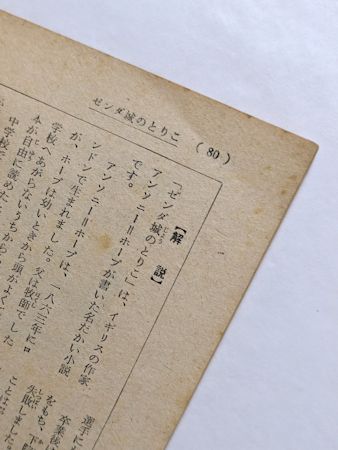 ゼンダ城のとりこ
(80)
【解説】
「ゼンダ城のとりこ」は、イギリスの作家
アンソニー＝ホープが書いた名だかい小説
です。
アンソニー＝ホープは、一八六三年にロ
ンドンで生まれました。父は牧師でした
が、ホープは幼いときから頭がよく、
学校へあがらないうちから
本が自由に読めた
中学校を
選手にも
卒業後は
をもち、下院
失敗しました。
ことは